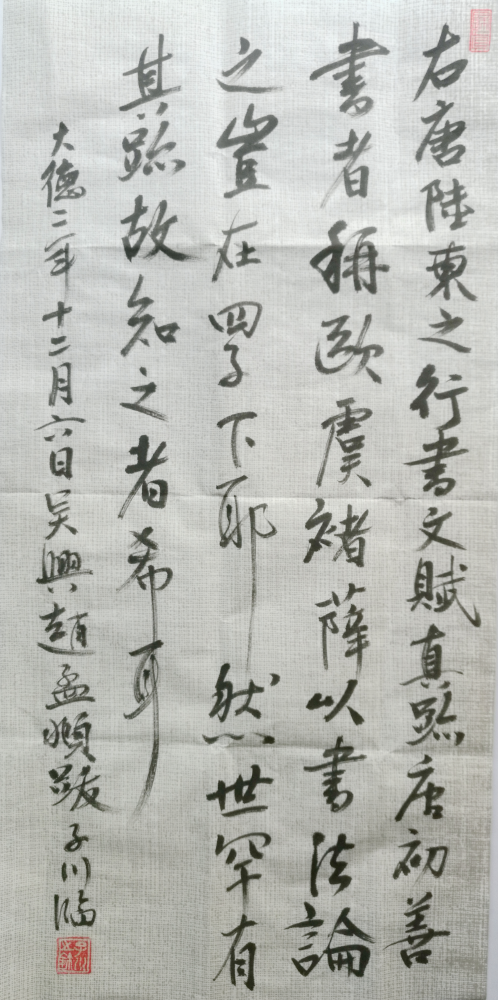 右唐陸柬之行書文賦真跡唐初善
書者稱歐虞褚薛以書法論
之豈在四子下耶然世罕有
其跡故知之者希耳
大德二年十二月六日吴興趙孟頫跋子川臨